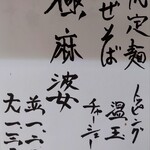 限定麺
まぜそば
極麻婆
トッピング
温玉
チャーシュー
並一、
大一、三